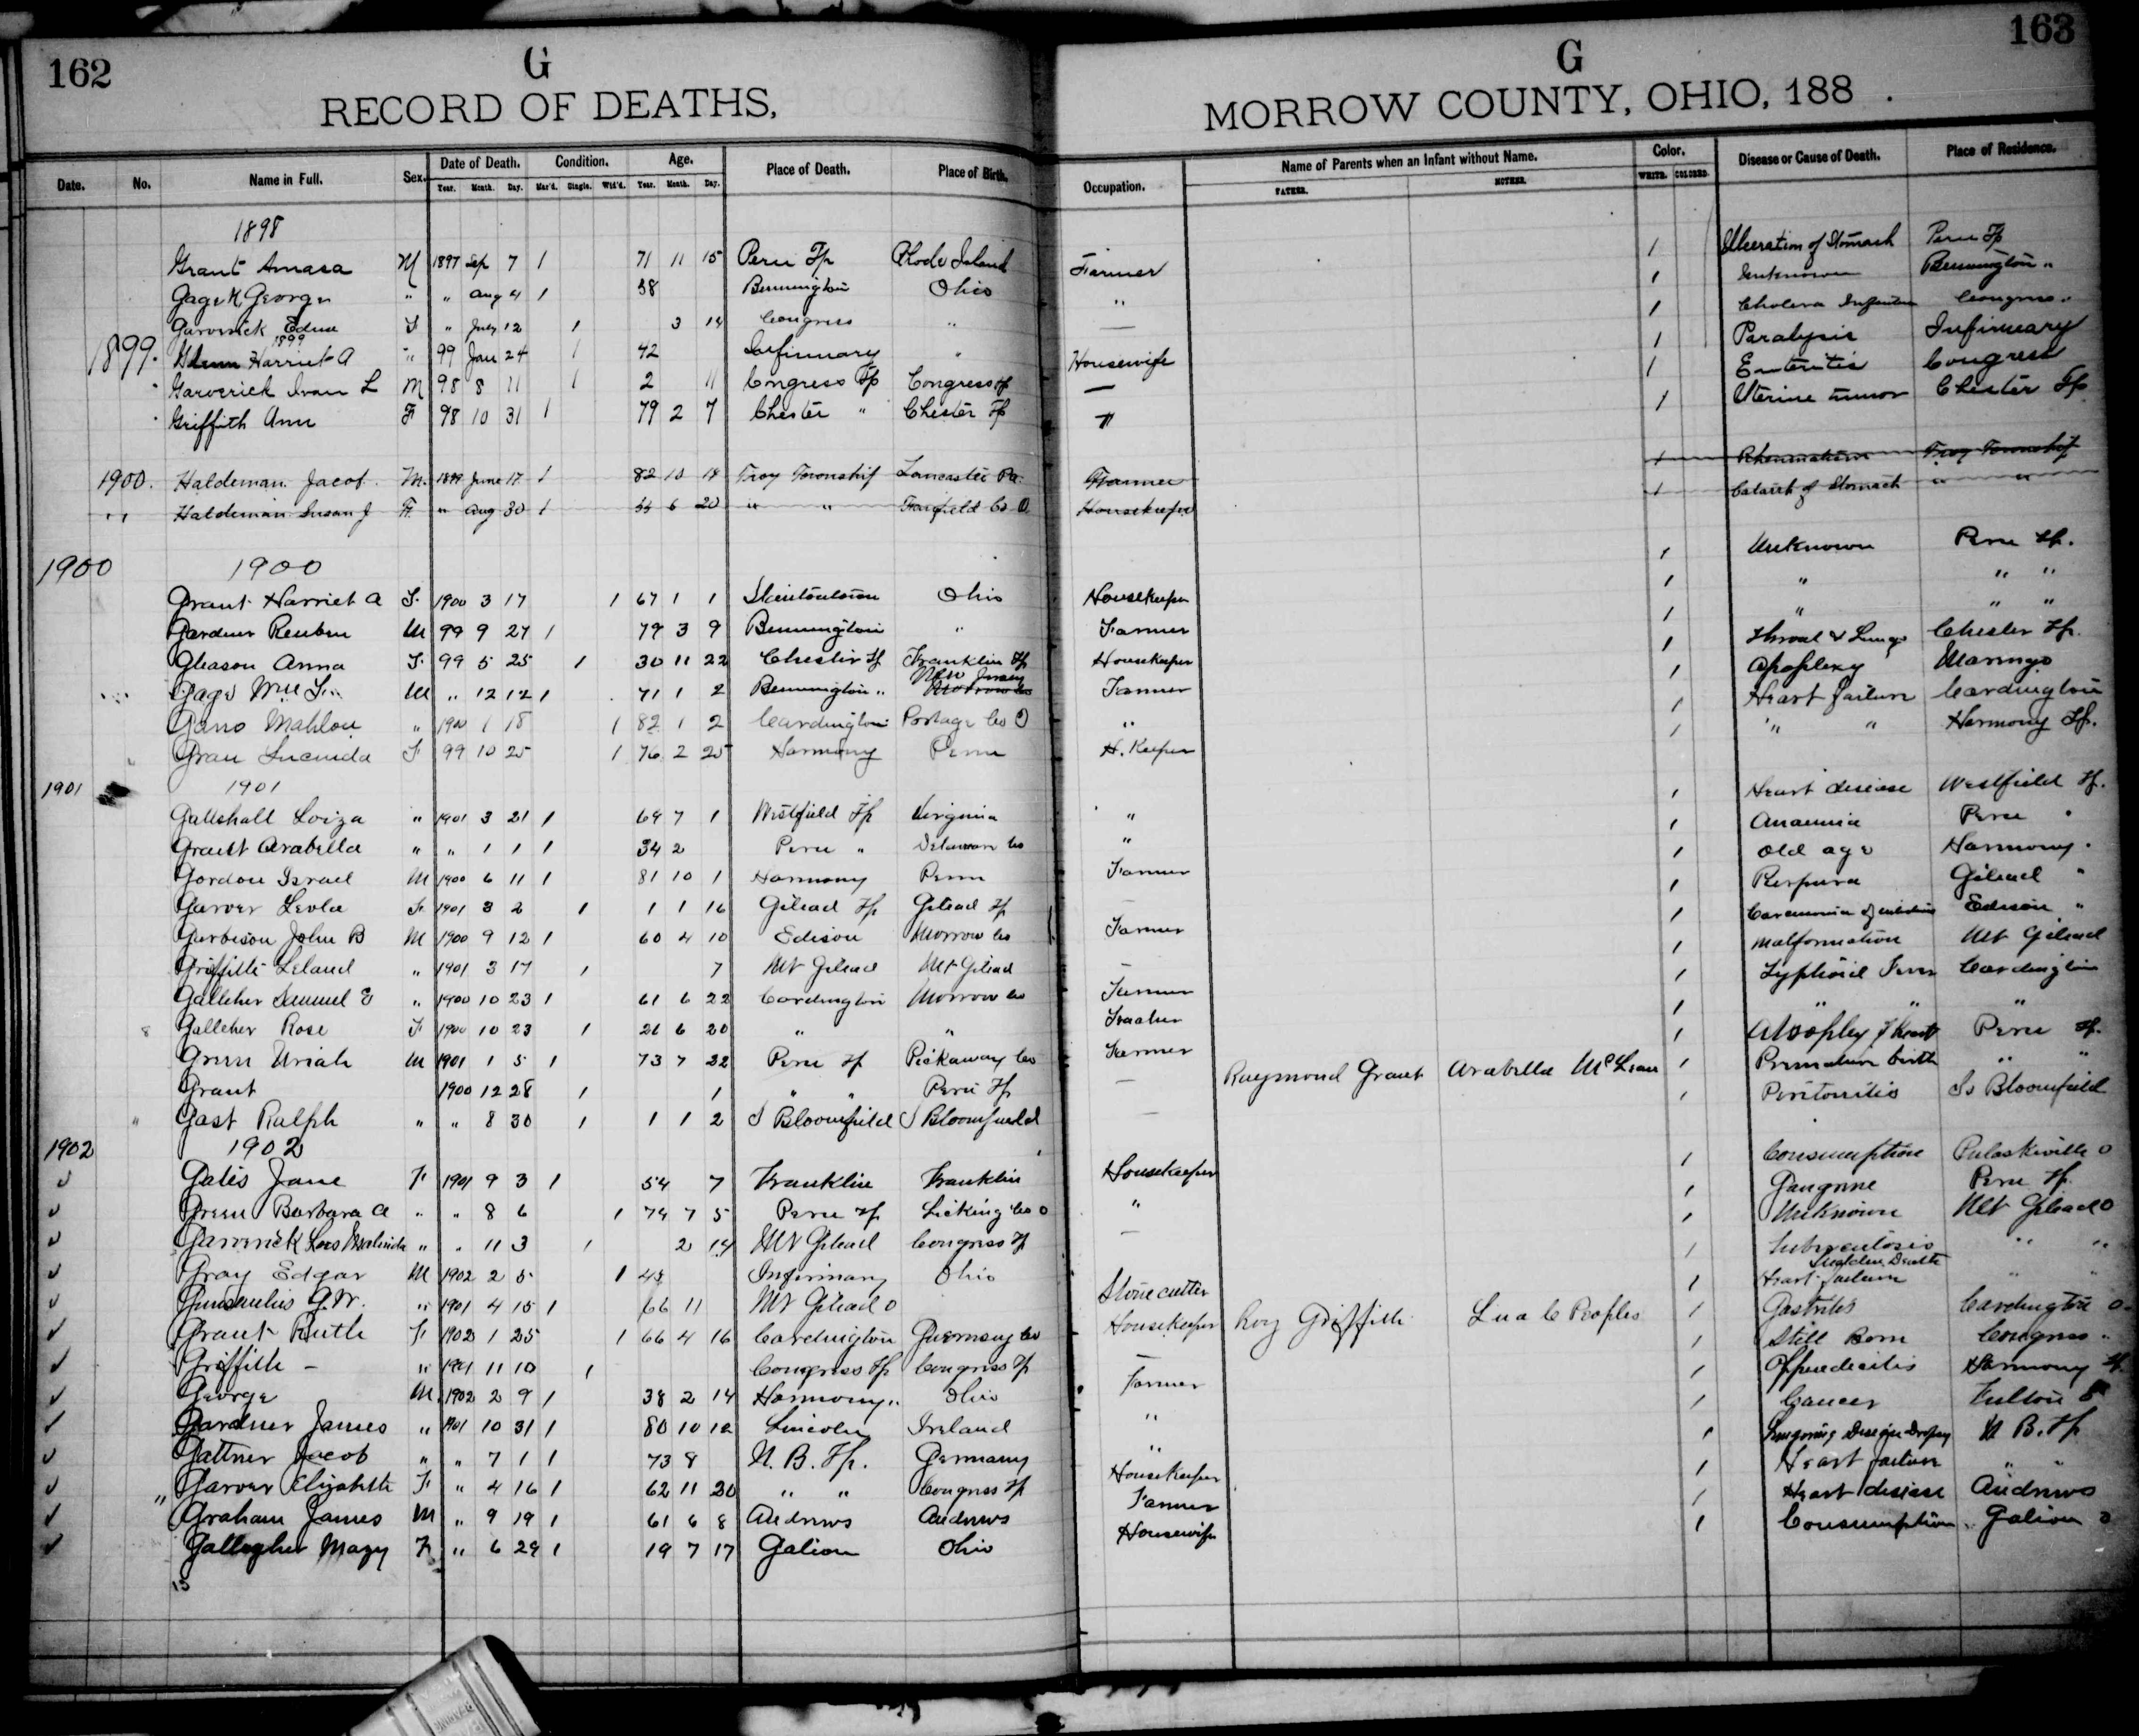 162
G
RECORD OF DEATHS,
163
G
MORROW COUNTY, OHIO, 188 .
Date. No. Name in Full. Sex. Date of Death. Condition. Age. Place of Death. Place of Birth. Occupation. Name of Parents when an Infant without Name. Color. Disease or Cause of Death. Place of Residence.
Year. Month. Day. Mar'd. Single. Wid'd. Year. Month. Day. FATHER. MOTHER. WHITE. COLORED.
1898
Grant Amasa M 1897 Sep 7 1 71 11 15 Peru Tp Rhode Island Farmer 1 Ulceration of Stomach Peru Tp
Gage George " " Aug 4 1 38 Bennington Ohio " 1 Unknown Bennington "
Garverick Edna F " July 12 1 3 14 Congress " — 1 Cholera Infantum Congress "
1899
1899. Glenn Harriet A " 99 Jan 24 1 42 Infirmary " Housewife 1 Paralysis Infirmary
Garverick Ivan L M 98 8 11 1 2 11 Congress Tp Congress Tp — 1 Enteritis Congress
Griffith Ann F 98 10 31 1 79 2 7 Chester " Chester Tp " 1 Uterine tumor Chester Tp
1900. Haldeman Jacob. M. 1899 June 17 1 82 10 18 Troy Township Lancaster Pa. Farmer 1 Rheumatism Troy Township
" Haldeman Susan J F. " Aug 30 1 6 20 " " Fairfield Co O Housekeeper 1 Catarrh of Stomach " "
1900 1900
Grant Harriet A F. 1900 3 17 1 67 1 1 Stantontown Ohio Housekeeper 1 Unknown Peru Tp.
Gardner Reuben M 99 9 27 1 79 3 9 Bennington " Farmer 1 " " "
Gleason Anna F. 99 5 25 1 30 11 22 Chester Tp Franklin Tp Housekeeper 1 " " "
New Jersey
Gage Wm M " 12 12 1 71 1 2 Bennington " Morrow Co Farmer 1 Throat & Lungs Chester Tp.
Gano Mahlon " 1900 1 18 1 82 1 2 Cardington Portage Co O " 1 Apoplexy Marengo
Grau Lucinda F 99 10 25 1 76 2 25 Harmony Penn H. Keeper 1 Heart failure Cardington
1 " " Harmony Tp.
1901 1901
Gallshall Loiza " 1901 3 21 1 69 7 1 Westfield Tp Virginia " 1 Heart disease Westfield Tp.
Grant Arabella " " 1 1 1 34 2 Peru " Delaware Co " 1 Anaemia Peru "
Gordon Israel M 1900 6 11 1 81 10 1 Harmony Penn Farmer 1 Old age Harmony "
Garver Levla F. 1901 3 2 1 1 1 16 Gilead Tp Gilead Tp 1 Purpura Gilead "
Garbison John B M 1900 9 12 1 60 4 10 Edison Morrow Co Farmer 1 Edison "
Griffith Leland " 1901 3 17 1 7 Mt Gilead Mt Gilead — 1 Malformation Mt Gilead
Galleher Samuel E " 1900 10 23 1 61 6 22 Cardington Morrow Co Farmer 1 Typhoid Fever Cardington
Galleher Rose F 1900 10 23 1 26 6 20 " " Teacher 1 " " "
Green Uriah M 1901 1 5 1 73 7 22 Peru Tp Pickaway Co Farmer 1 Atrophy of Heart Peru Tp.
Grant 1900 12 28 1 1 " " Peru Tp — Raymond Grant Arabella McLean 1 Premature birth " "
" Gast Ralph " " 8 30 1 1 1 2 S Bloomfield S Bloomfield — 1 Peritonitis So Bloomfield
1902 1902
Gates Jane F 1901 9 3 1 54 7 Franklin Franklin Housekeeper 1 Consumption Pulaskiville O
Green Barbara A " " 8 6 1 74 7 5 Peru Tp Licking Co O " 1 Gangrene Peru Tp
Garverick Lois Malinda " " 11 3 1 2 14 Mt Gilead Congress Tp — 1 Unknown Mt Gilead O
Gray Edgar M 1902 2 5 1 45 Infirmary Ohio 1 Tuberculosis " "
Sudden Death
Gunsaulus G.W. " 1901 4 15 1 66 11 Mt Gilead O Stone cutter 1 Heart failure " "
Grant Ruth F 1902 1 25 1 66 4 16 Cardington Guernsey Co Housekeeper 1 Gastritis Cardington O
Griffith — " 1901 11 10 1 Congress Tp Congress Tp — Roy Griffith Lua C Peoples 1 Still Born Congress "
George M 1902 2 9 1 38 2 14 Harmony " Ohio Farmer 1 Appendicitis Harmony Tp
Gardner James " 1901 10 31 1 80 10 12 Lincoln Ireland " 1 Cancer Fulton O
Gattner Jacob " " 7 1 1 73 8 N. B. Tp. Germany " 1 Lingering Disease Dropsy N B. Tp
" Garver Elizabeth F " 4 16 1 62 11 20 " " Congress Tp Housekeeper 1 Heart failure " "
Graham James M " 9 19 1 61 6 8 Andrews Andrews Farmer 1 Heart disease Andrews
Gallagher Mary F " 6 29 1 19 7 17 Galion Ohio Housewife 1 Consumption Galion O
13